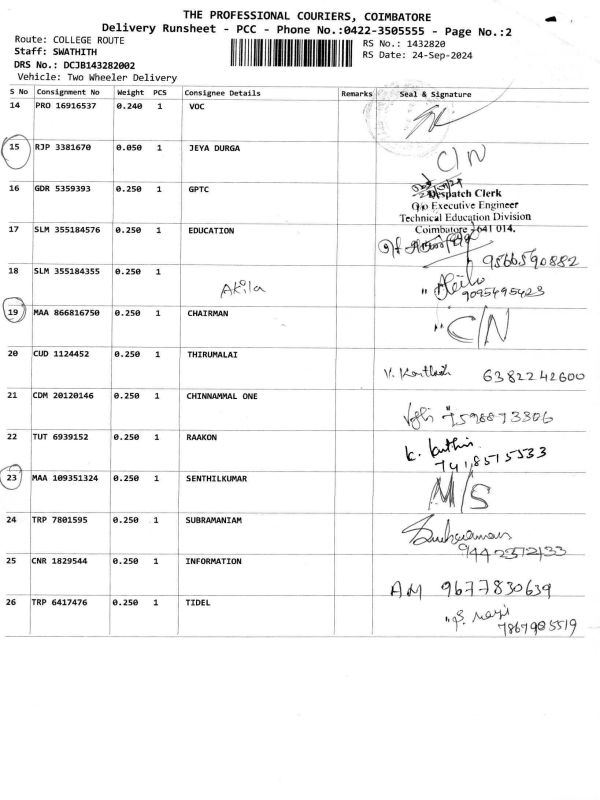 THE PROFESSIONAL COURIERS, COIMBATORE
Delivery Runsheet - PCC - Phone No.:0422-3505555 - Page No.:2
Route: COLLEGE ROUTE
RS No.: 1432820
Staff: SWATHITH
RS Date: 24-Sep-2024
DRS No.: DCJB143282002
Vehicle: Two Wheeler Delivery
S No Consignment No Weight PCS Consignee Details Remarks Seal & Signature
14 PRO 16916537 0.240 1 VOC
15 RJP 3381670 0.050 1 JEYA DURGA C/N
16 GDR 5359393 0.250 1 GPTC
Despatch Clerk
O/o Executive Engineer
Technical Education Division
Coimbatore - 641 014.
17 SLM 355184576 0.250 1 EDUCATION 9566590882
18 SLM 355184355 0.250 1 Akila 9095495423
19 MAA 866816750 0.250 1 CHAIRMAN " C/N
20 CUD 1124452 0.250 1 THIRUMALAI 6382242600
21 CDM 20120146 0.250 1 CHINNAMMAL ONE 7598873306
22 TUT 6939152 0.250 1 RAAKON 7418515533
23 MAA 109351324 0.250 1 SENTHILKUMAR M/S
24 TRP 7801595 0.250 1 SUBRAMANIAM
25 CNR 1829544 0.250 1 INFORMATION AM 9677830639
26 TRP 6417476 0.250 1 TIDEL 7867905519